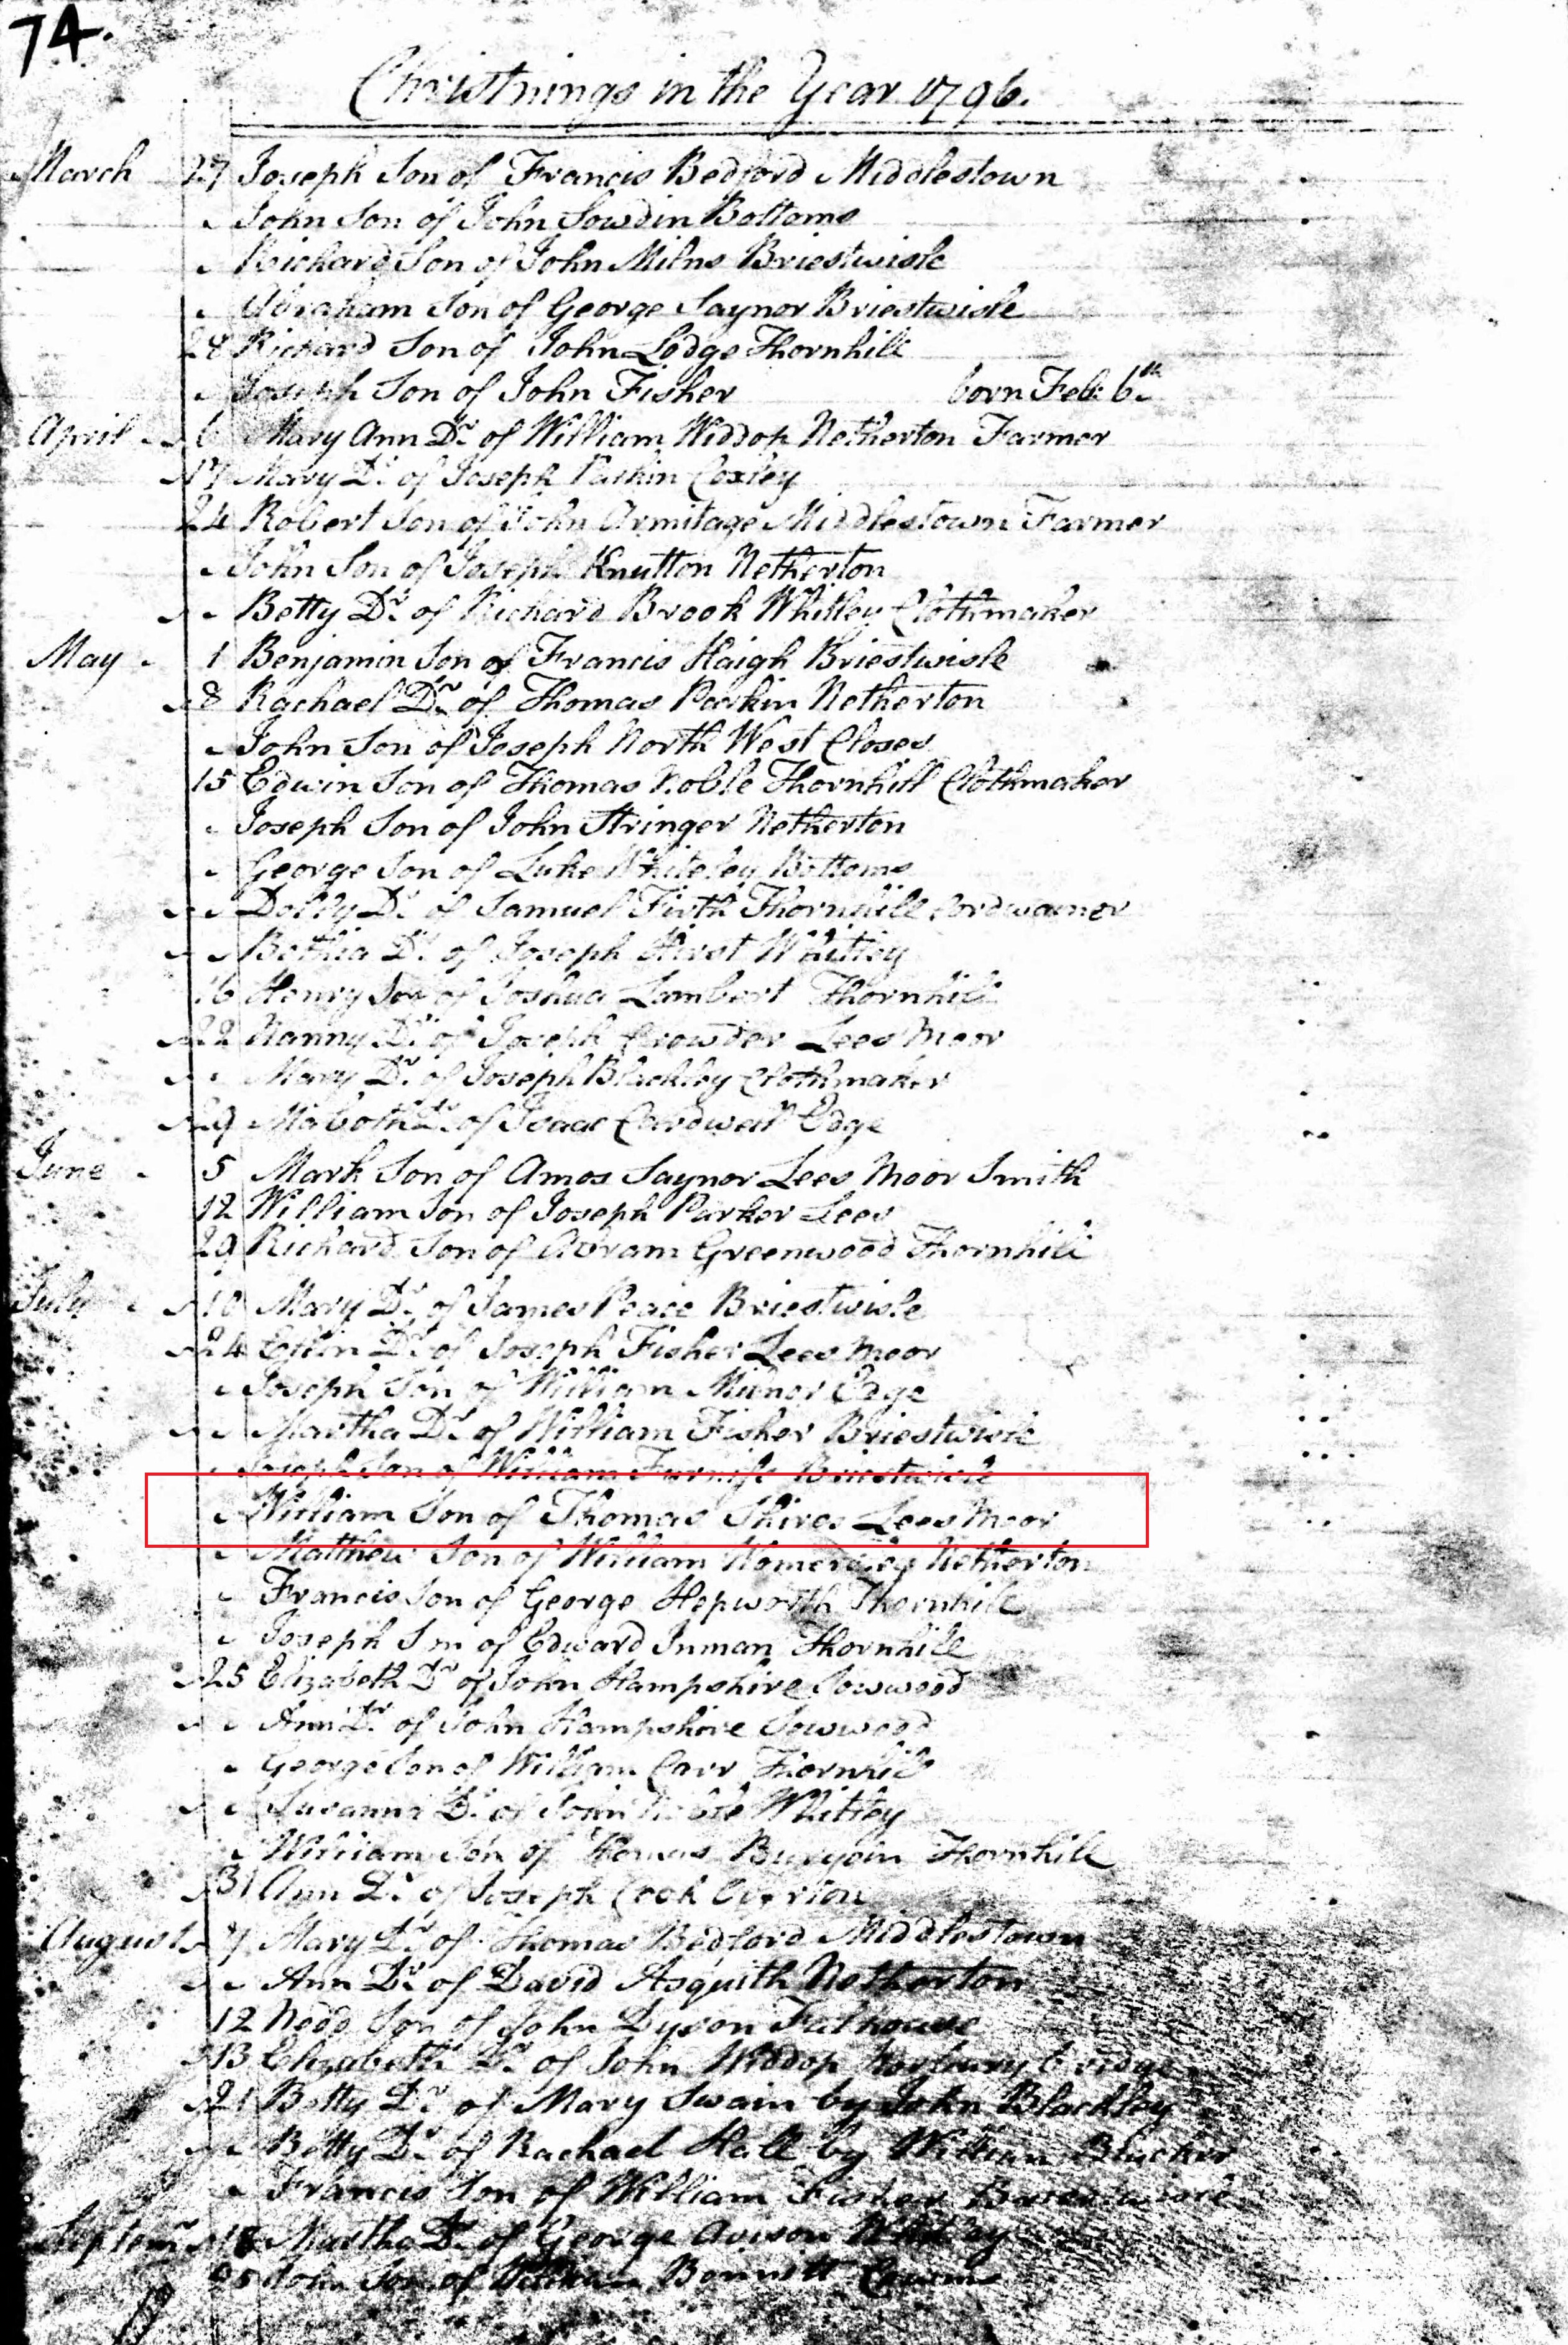 74.
Christnings in the Year 1796.
March 27 Joseph Son of Francis Bedford Middlestown
John Son of John Sowdin Bottoms
Richard Son of John Milns Briestwisle
Abraham Son of George Saynor Briestwisle
28 Richard Son of John Lodge Thornhill
Joseph Son of John Fisher born Feb: 6th
April 6 Mary Ann Dr. of William Widdop Netherton Farmer
17 Mary Dr. of Joseph Parkin Coxley
24 Robert Son of John Armitage Middlestown Farmer
John Son of Joseph Knutton Netherton
Betty Dr. of Richard Brook Whitley Clothmaker
May 1 Benjamin Son of Francis Haigh Briestwisle
8 Rachael Dr. of Thomas Parkin Netherton
John Son of Joseph North West Closes
15 Edwin Son of Thomas Noble Thornhill Clothmaker
Joseph Son of John Stringer Netherton
George Son of Luke Whiteley Bottoms
Dolly Dr. of Samuel Firth Thornhill Cordwainer
Bethia Dr. of Joseph Hirst Whitley
16 Henry Son of Joshua Lambert Thornhill
22 Nanny Dr. of Joseph Crowder Lees Moor
Mary Dr. of Joseph Blackley Clothmaker
29 Dr. of Isaac Cardwell Edge
June 5 Mark Son of Amos Saynor Lees Moor Smith
12 William Son of Joseph Parker Lees
29 Richard Son of Abram Greenwood Thornhill
July 10 Mary Dr. of James Peace Briestwisle
24 Dr. of Joseph Fisher Lees Moor
Joseph Son of William Milner Edge
Martha Dr. of William Fisher Briestwisle
Joseph Son of William Furniss Briestwisle
William Son of Thomas Shires Lees Moor
Matthew Son of William Homersley Netherton
Francis Son of George Hepworth Thornhill
Joseph Son of Edward Inman Thornhill
25 Elizabeth Dr of John Hampshire Sowwood
Ann Dr. of John Hampshire Sowwood
George Son of William Carr Thornhill
Susanna Dr. of John Noble Whitley
William Son of Thomas Burgoin Thornhill
31 Ann Dr. of Joseph Cook Overton
August 7 Mary Dr. of Thomas Bedford Middlestown
Ann Dr. of David Asquith Netherton
12 Nedd Son of John Dyson Falhouse
13 Elizabeth Dr. of John Widdop Horbury bridge
21 Betty Dr. of Mary Swain by John Blackley
Betty Dr. of Rachael Hall by William
Francis Son of William Fisher Briestwisle
Septemr. 18 Martha Dr. of George Avison Whitley
25 John Son of William Bennett